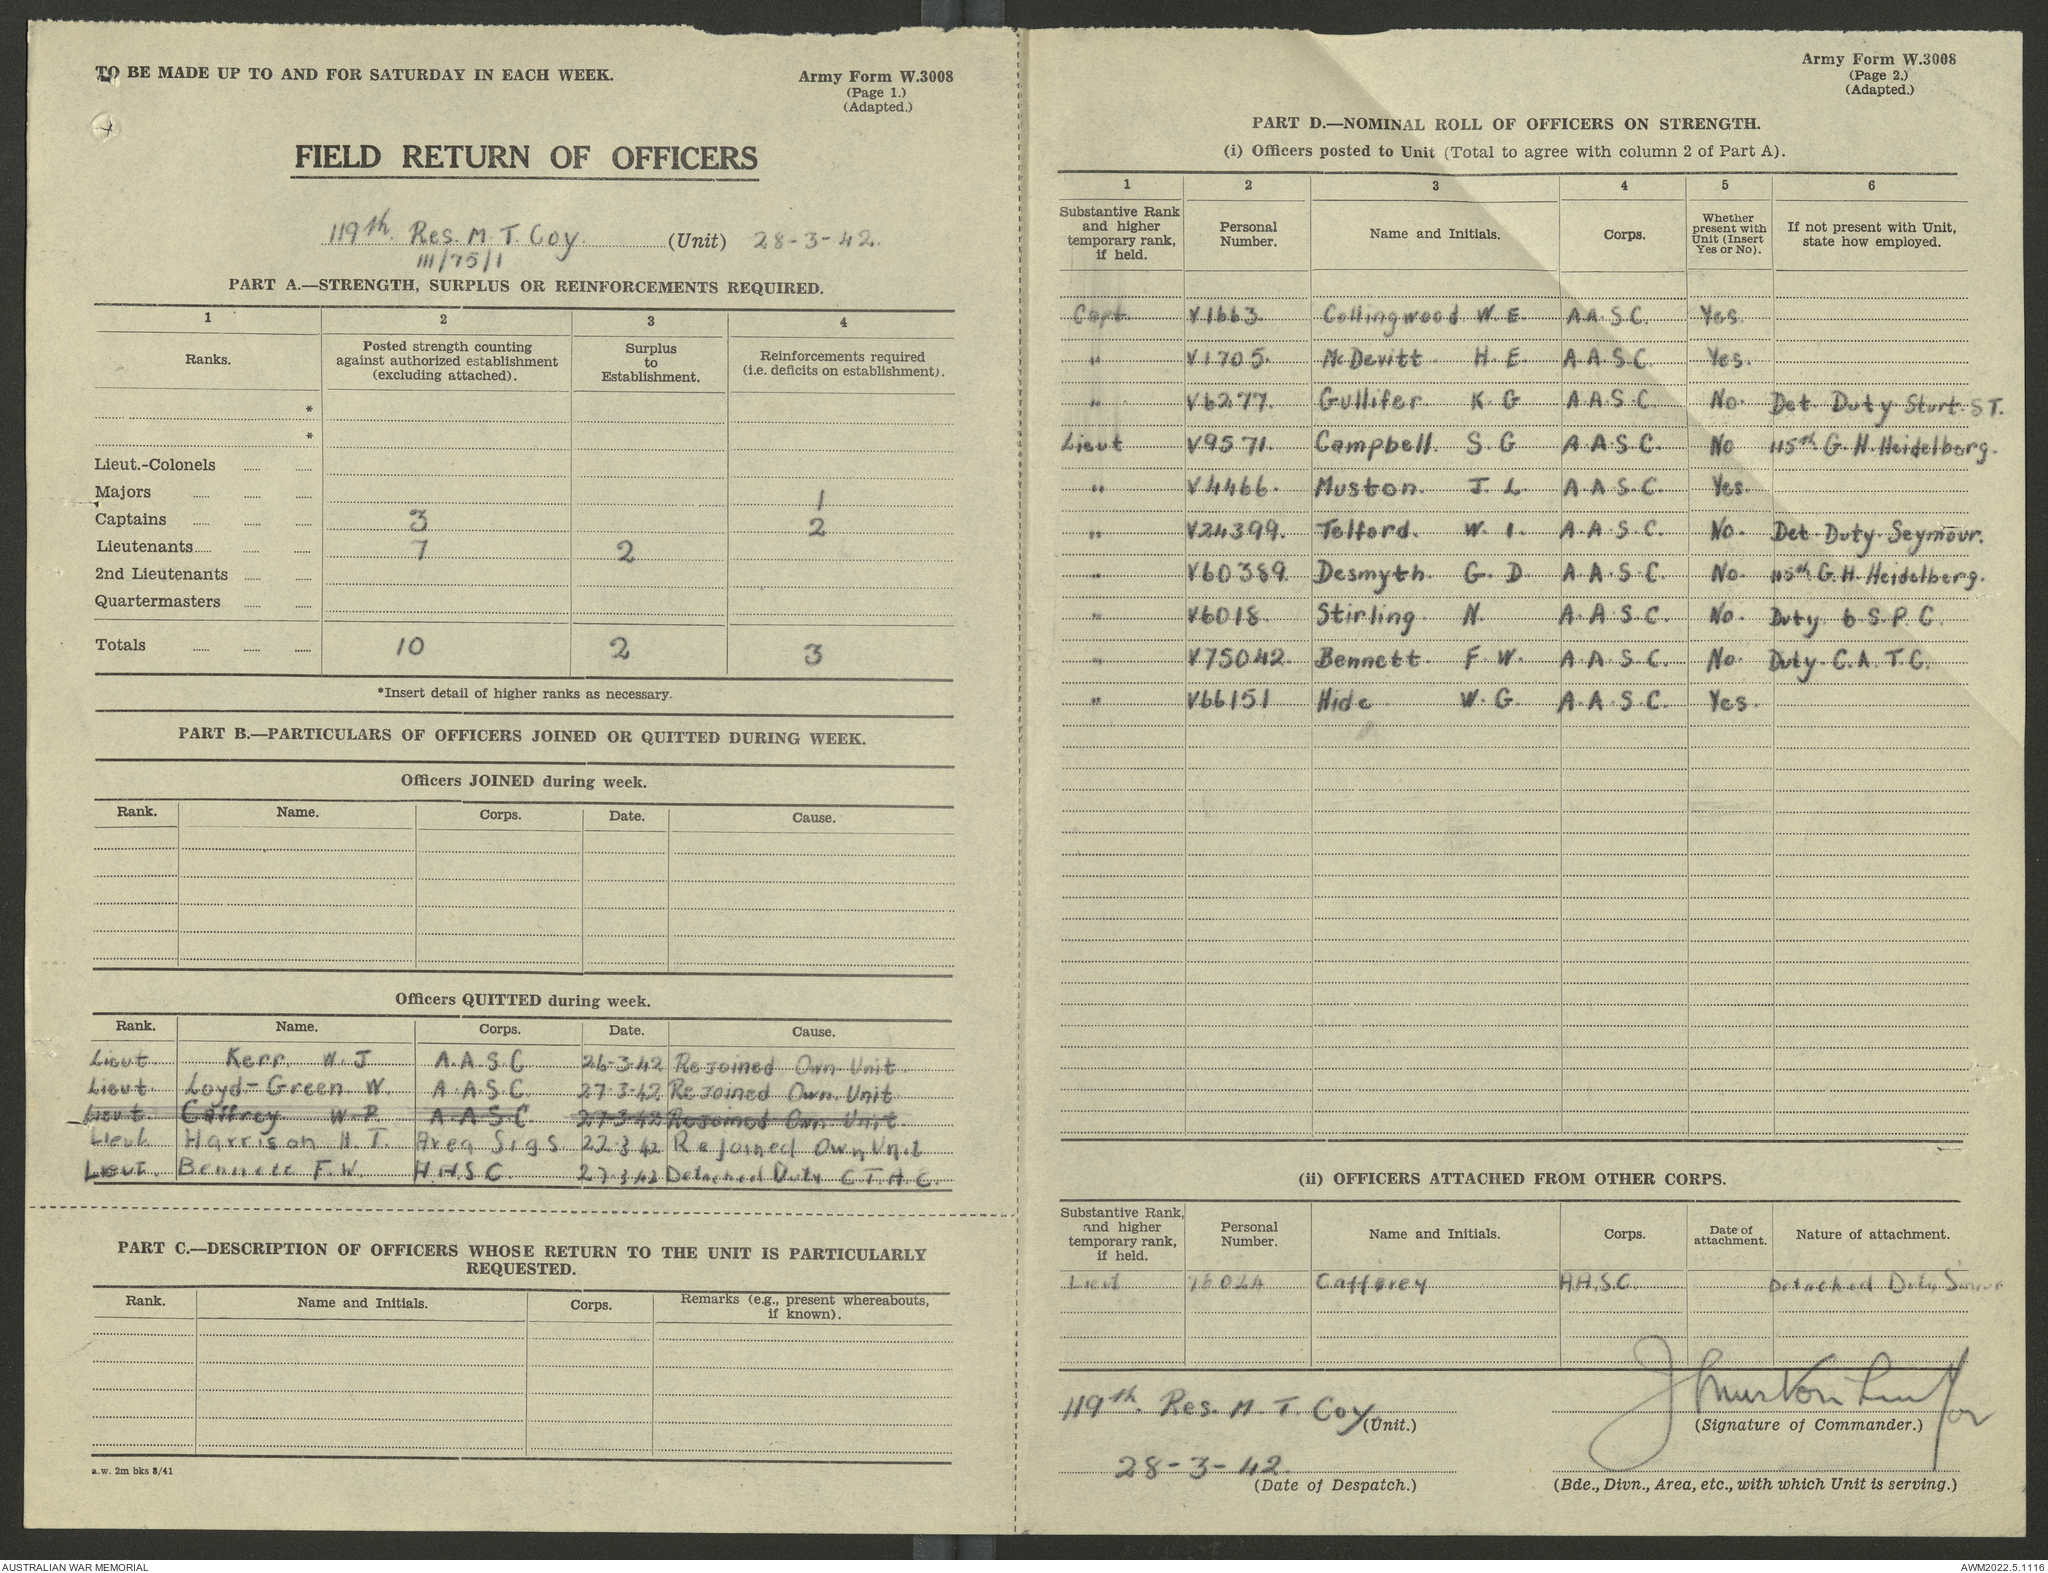 TO BE MADE UP TO AND FOR SATURDAY IN EACH WEEK.
Army Form W.3008
(Page 1.)
(Adapted.)
FIELD RETURN OF OFFICERS
119th Res. M. T. Coy. (Unit) 28-3-42.
111/75/1
PART A.—STRENGTH, SURPLUS OR REINFORCEMENTS REQUIRED.
1 2 3 4
Ranks. Posted strength counting against authorized establishment (excluding attached). Surplus to Establishment. Reinforcements required (i.e. deficits on establishment).
*
*
Lieut.-Colonels
Majors 1
Captains 3 2
Lieutenants 7 2
2nd Lieutenants
Quartermasters
Totals 10 2 3
*Insert detail of higher ranks as necessary.
PART B.—PARTICULARS OF OFFICERS JOINED OR QUITTED DURING WEEK.
Officers JOINED during week.
Rank. Name. Corps. Date. Cause.
Officers QUITTED during week.
Rank. Name. Corps. Date. Cause.
Lieut Kerr W. J A.A.S.C 26-3-42 Rejoined Own Unit
Lieut. Loyd-Green W. A.A.S.C 27-3-42 Rejoined Own Unit
Lieut Caffrey W.P. A.A.S.C. 27-3-42 Rejoined Own Unit.
Lieut Harrison H. T. Area Sigs 22-3-42 Rejoined Own Unit
Lieut. Bennett F.W. A.A.S.C. 27-3-42 Detached Duty
PART C.—DESCRIPTION OF OFFICERS WHOSE RETURN TO THE UNIT IS PARTICULARLY
REQUESTED.
Rank. Name and Initials. Corps. Remarks (e.g., present whereabouts, if known).
a.w. 2m bks 8/41
Army Form W.3008
(Page 2.)
(Adapted.)
PART D.—NOMINAL ROLL OF OFFICERS ON STRENGTH.
(i) Officers posted to Unit (Total to agree with column 2 of Part A).
1 2 3 4 5 6
Substantive Rank and higher temporary rank, if held. Personal Number. Name and Initials. Corps. Whether present with Unit (Insert Yes or No). If not present with Unit, state how employed.
Capt. V1663. Collingwood W. E. A.A.S.C. Yes.
" V1705. McDevitt H. E A.A.S.C. Yes.
" V6277. Gullifer K. G A.A.S.C. No. Det Duty Sturt. ST.
Lieut V9571. Campbell. S. G A.A.S.C. No 115th G.H. Heidelberg.
" V4466. Muston J. L. A.A.S.C. Yes.
" V24399. Telford. W. I. A.A.S.C. No. Det Duty Seymour.
" V60389. Desmyth. G. D. A.A.S.C. No. 115th G.H. Heidelberg.
" V6018. Stirling N. A.A.S.C. No. Duty 6 S.P.C.
" V75042. Bennett F. W. A.A.S.C. No. Duty C.A.T.C.
" V66151 Hide W. G. A.A.S.C. Yes.
(ii) OFFICERS ATTACHED FROM OTHER CORPS.
Substantive Rank, and higher temporary rank, if held. Personal Number. Name and Initials. Corps. Date of attachment. Nature of attachment.
Lieut Cafferey A.A.S.C. Detached Duty
119th. Res. M. T. Coy (Unit.)
(Signature of Commander.)
28-3-42.
(Date of Despatch.)
(Bde., Divn., Area, etc., with which Unit is serving.)
AUSTRALIAN WAR MEMORIAL
AWM2022.5.1116